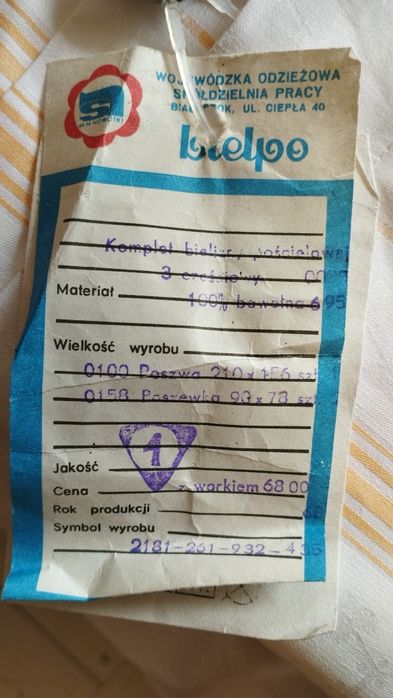 WOJEWÓDZKA ODZIEŻOWA
SPÓŁDZIELNIA PRACY
BIAŁYSTOK, UL. CIEPŁA 40
S
IM. M. NOWOTKI
bielpo
Komplet bieliz. pościelowej
3 częściowy
Materiał 100% bawełna
Wielkość wyrobu
0100 Poszwa 210 x 156 szt
0158 Poszewka 90 x 78 szt
1
Jakość
Cena z workiem 68 00
Rok produkcji
Symbol wyrobu
2181-261-932-4